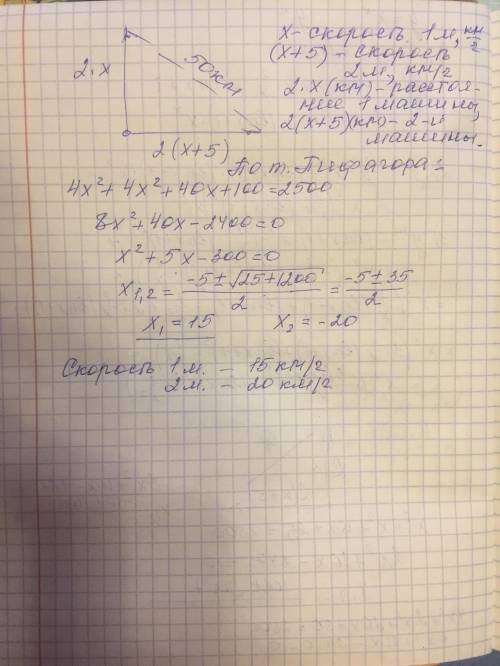 2·x
50км
2(x+5)
x - скорость 1м, км/г
(x+5) - скорость
2м, км/г
2·x(км) - расстоя-
ние 1 машины,
2(x+5)(км) - 2-й
машины.
По т. Пифагора:
4x²+4x²+40x+100=2500
8x²+40x-2400=0
x²+5x-300=0
x₁,₂ = (-5±√(25+1200))/2 = (-5±35)/2
x₁=15 x₂=-20
Скорость 1м. - 15км/г
2м. - 20км/г